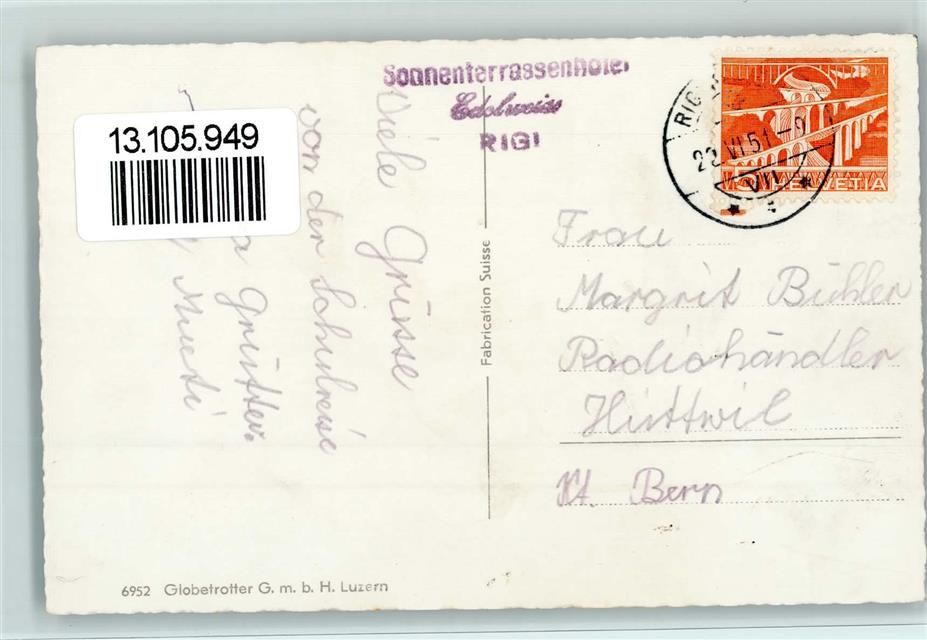 13.105.949
Sonnenterrassenhotel
Edelweiss
RIGI
RIG
22 VI 51 - 9
VII
HELVETIA
Viele Grüsse
von der Schulreise
Grütter.
Mueti
Fabrication Suisse
Frau
Margrit Bühler
Radiohändler
Huttwil
Kt. Bern
6952 Globetrotter G. m. b. H. Luzern